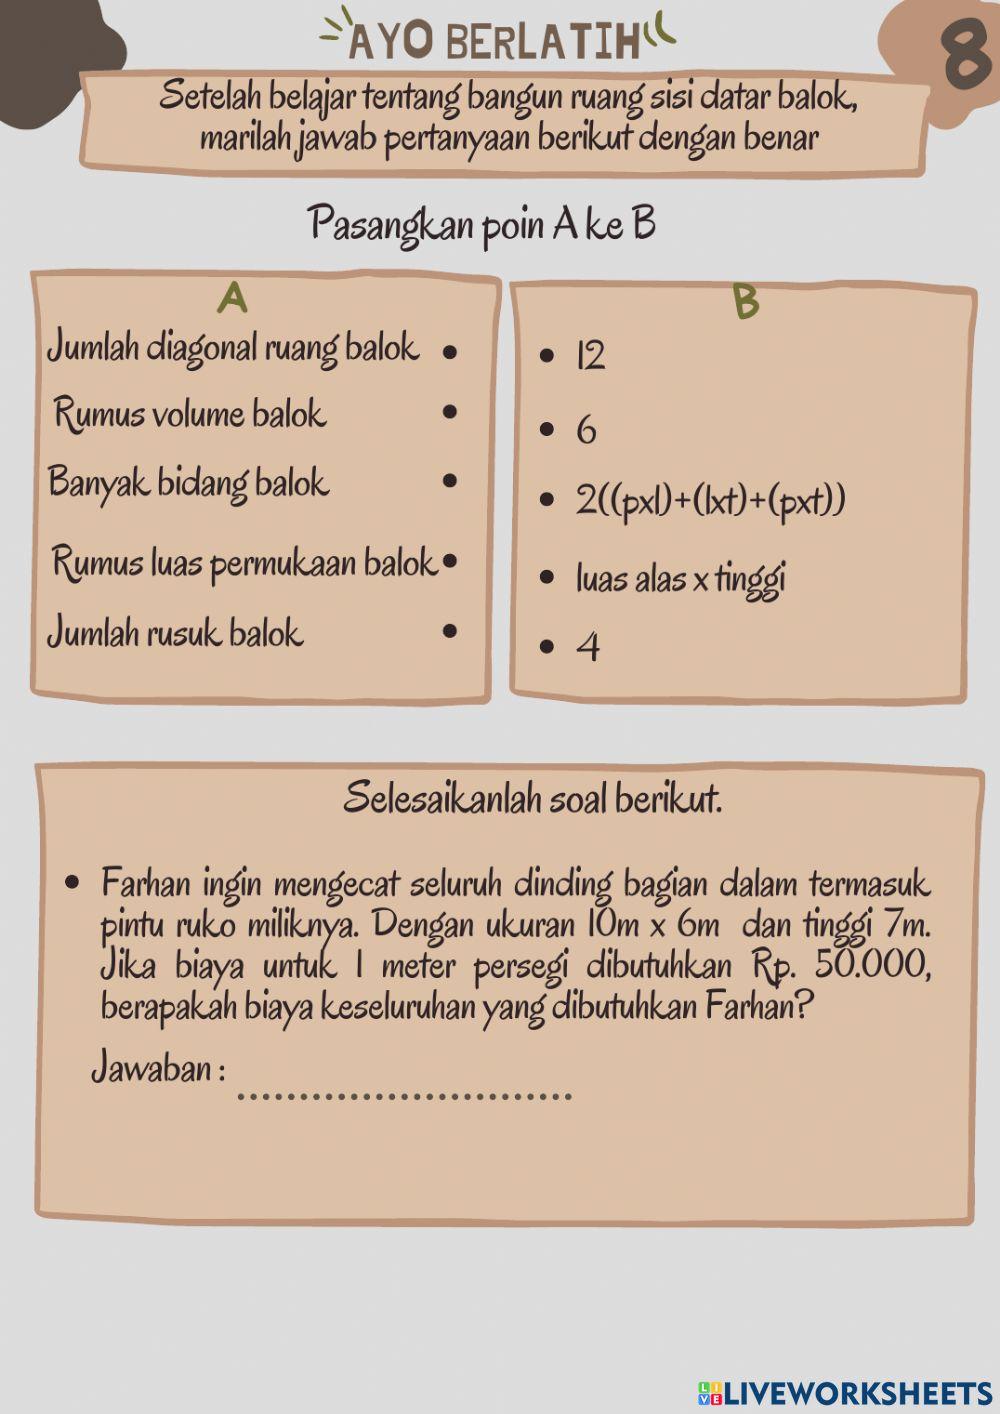 AYO BERLATIH
8
Setelah belajar tentang bangun ruang sisi datar balok,
marilah jawab pertanyaan berikut dengan benar
Pasangkan poin A ke B
A
Jumlah diagonal ruang balok •
Rumus volume balok •
Banyak bidang balok •
Rumus luas permukaan balok •
Jumlah rusuk balok •
B
• 12
• 6
• 2((pxl)+(lxt)+(pxt))
• luas alas x tinggi
• 4
Selesaikanlah soal berikut.
• Farhan ingin mengecat seluruh dinding bagian dalam termasuk
pintu ruko miliknya. Dengan ukuran 10m x 6m dan tinggi 7m.
Jika biaya untuk 1 meter persegi dibutuhkan Rp. 50.000,
berapakah biaya keseluruhan yang dibutuhkan Farhan?
Jawaban : ...........................
LIVE LIVEWORKSHEETS